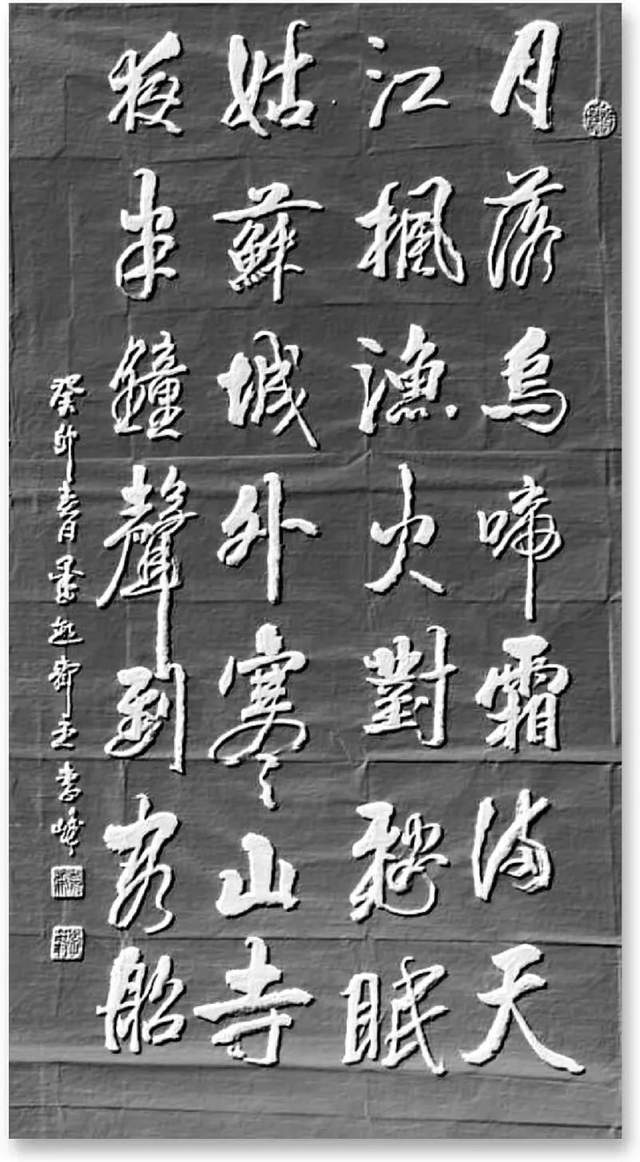 月落烏啼霜滿天
江楓漁火對愁眠
姑蘇城外寒山寺
夜半鐘聲到客船
癸卯春月墨齋主